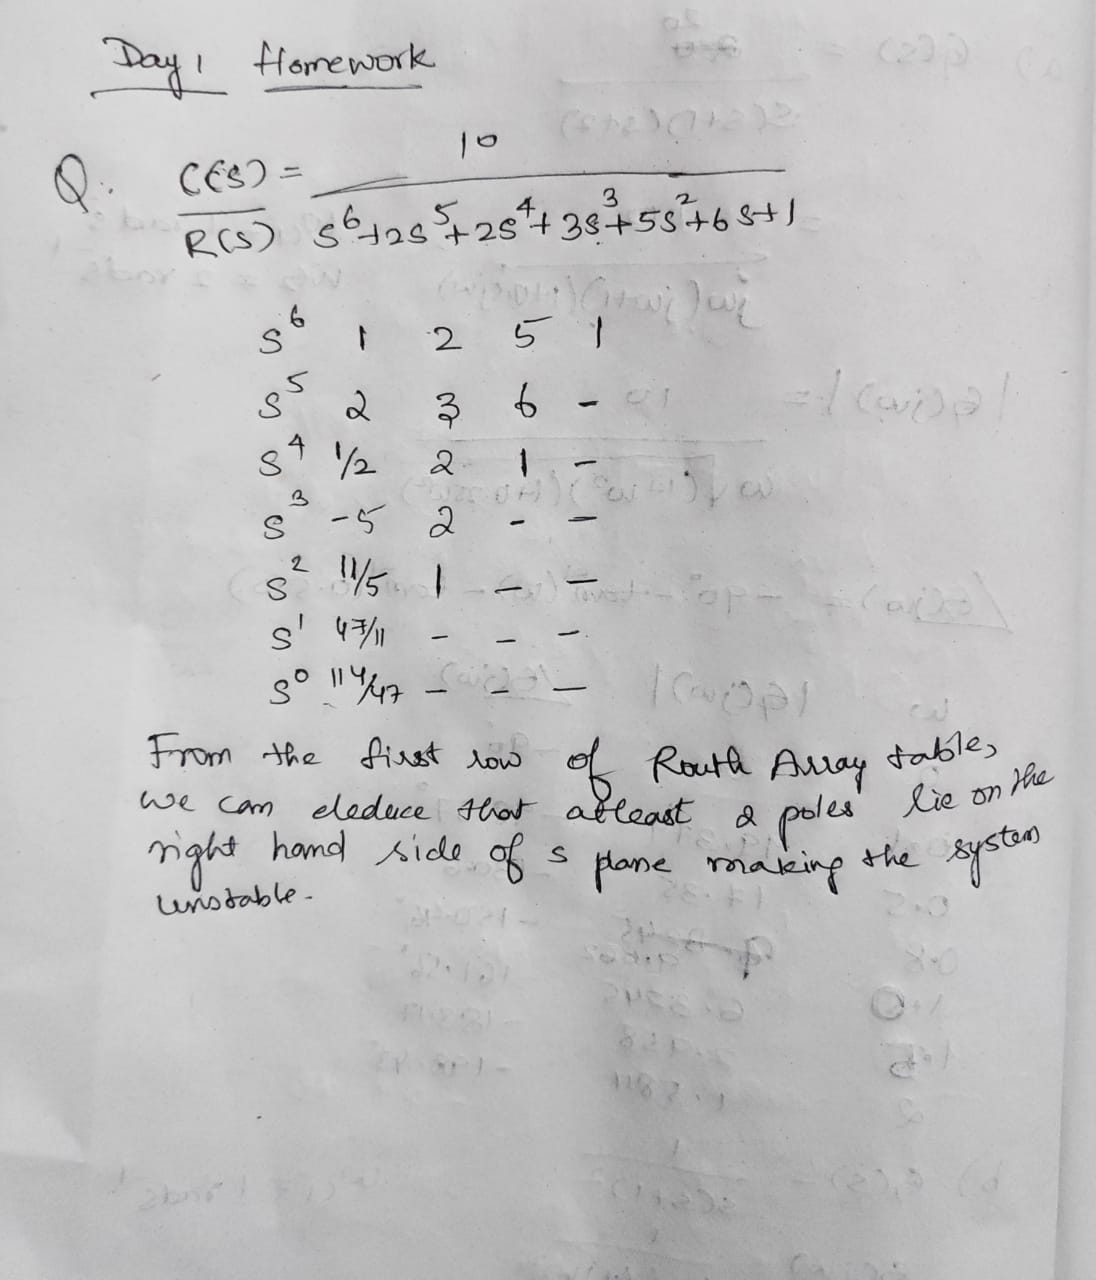 Day 1 Homework
Q. C(S)/R(S) = 10/(s^6+2s^5+2s^4+3s^3+5s^2+6s+1)
s^6 1 2 5 1
s^5 2 3 6 -
s^4 1/2 2 1 -
s^3 -5 2 - -
s^2 11/5 1 - -
s^1 47/11 - - -
s^0 114/47 - - -
From the first row of Routh Array table,
we can deduce that atleast 2 poles lie on the
right hand side of s plane making the system
unstable.